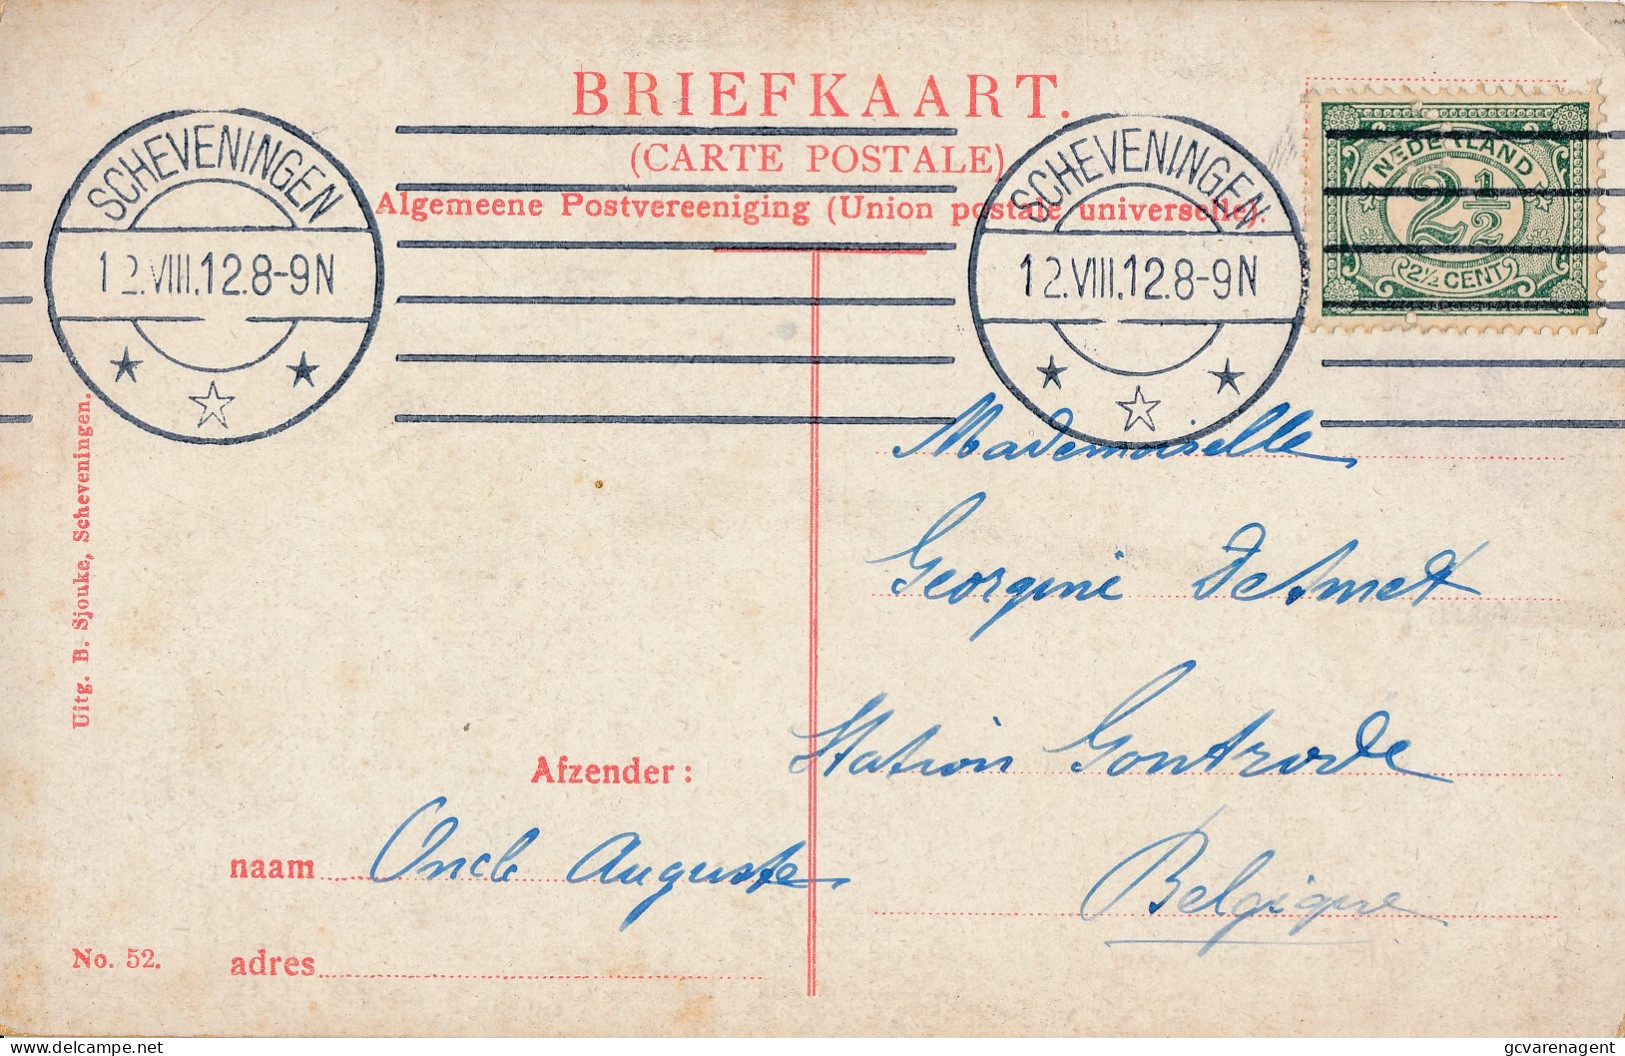 BRIEFKAART.
(CARTE POSTALE)
Algemeene Postvereeniging (Union postale universelle).
SCHEVENINGEN
12.VIII.12.8-9N
SCHEVENINGEN
12.VIII.12.8-9N
NEDERLAND
2½
2½ CENT
Mademoiselle
Georgine DeSmet
Station Gontrode
Belgique
Uitg. B. Sjouke, Scheveningen.
Afzender:
naam Oncle Auguste
No. 52.
adres
gcvarenagent